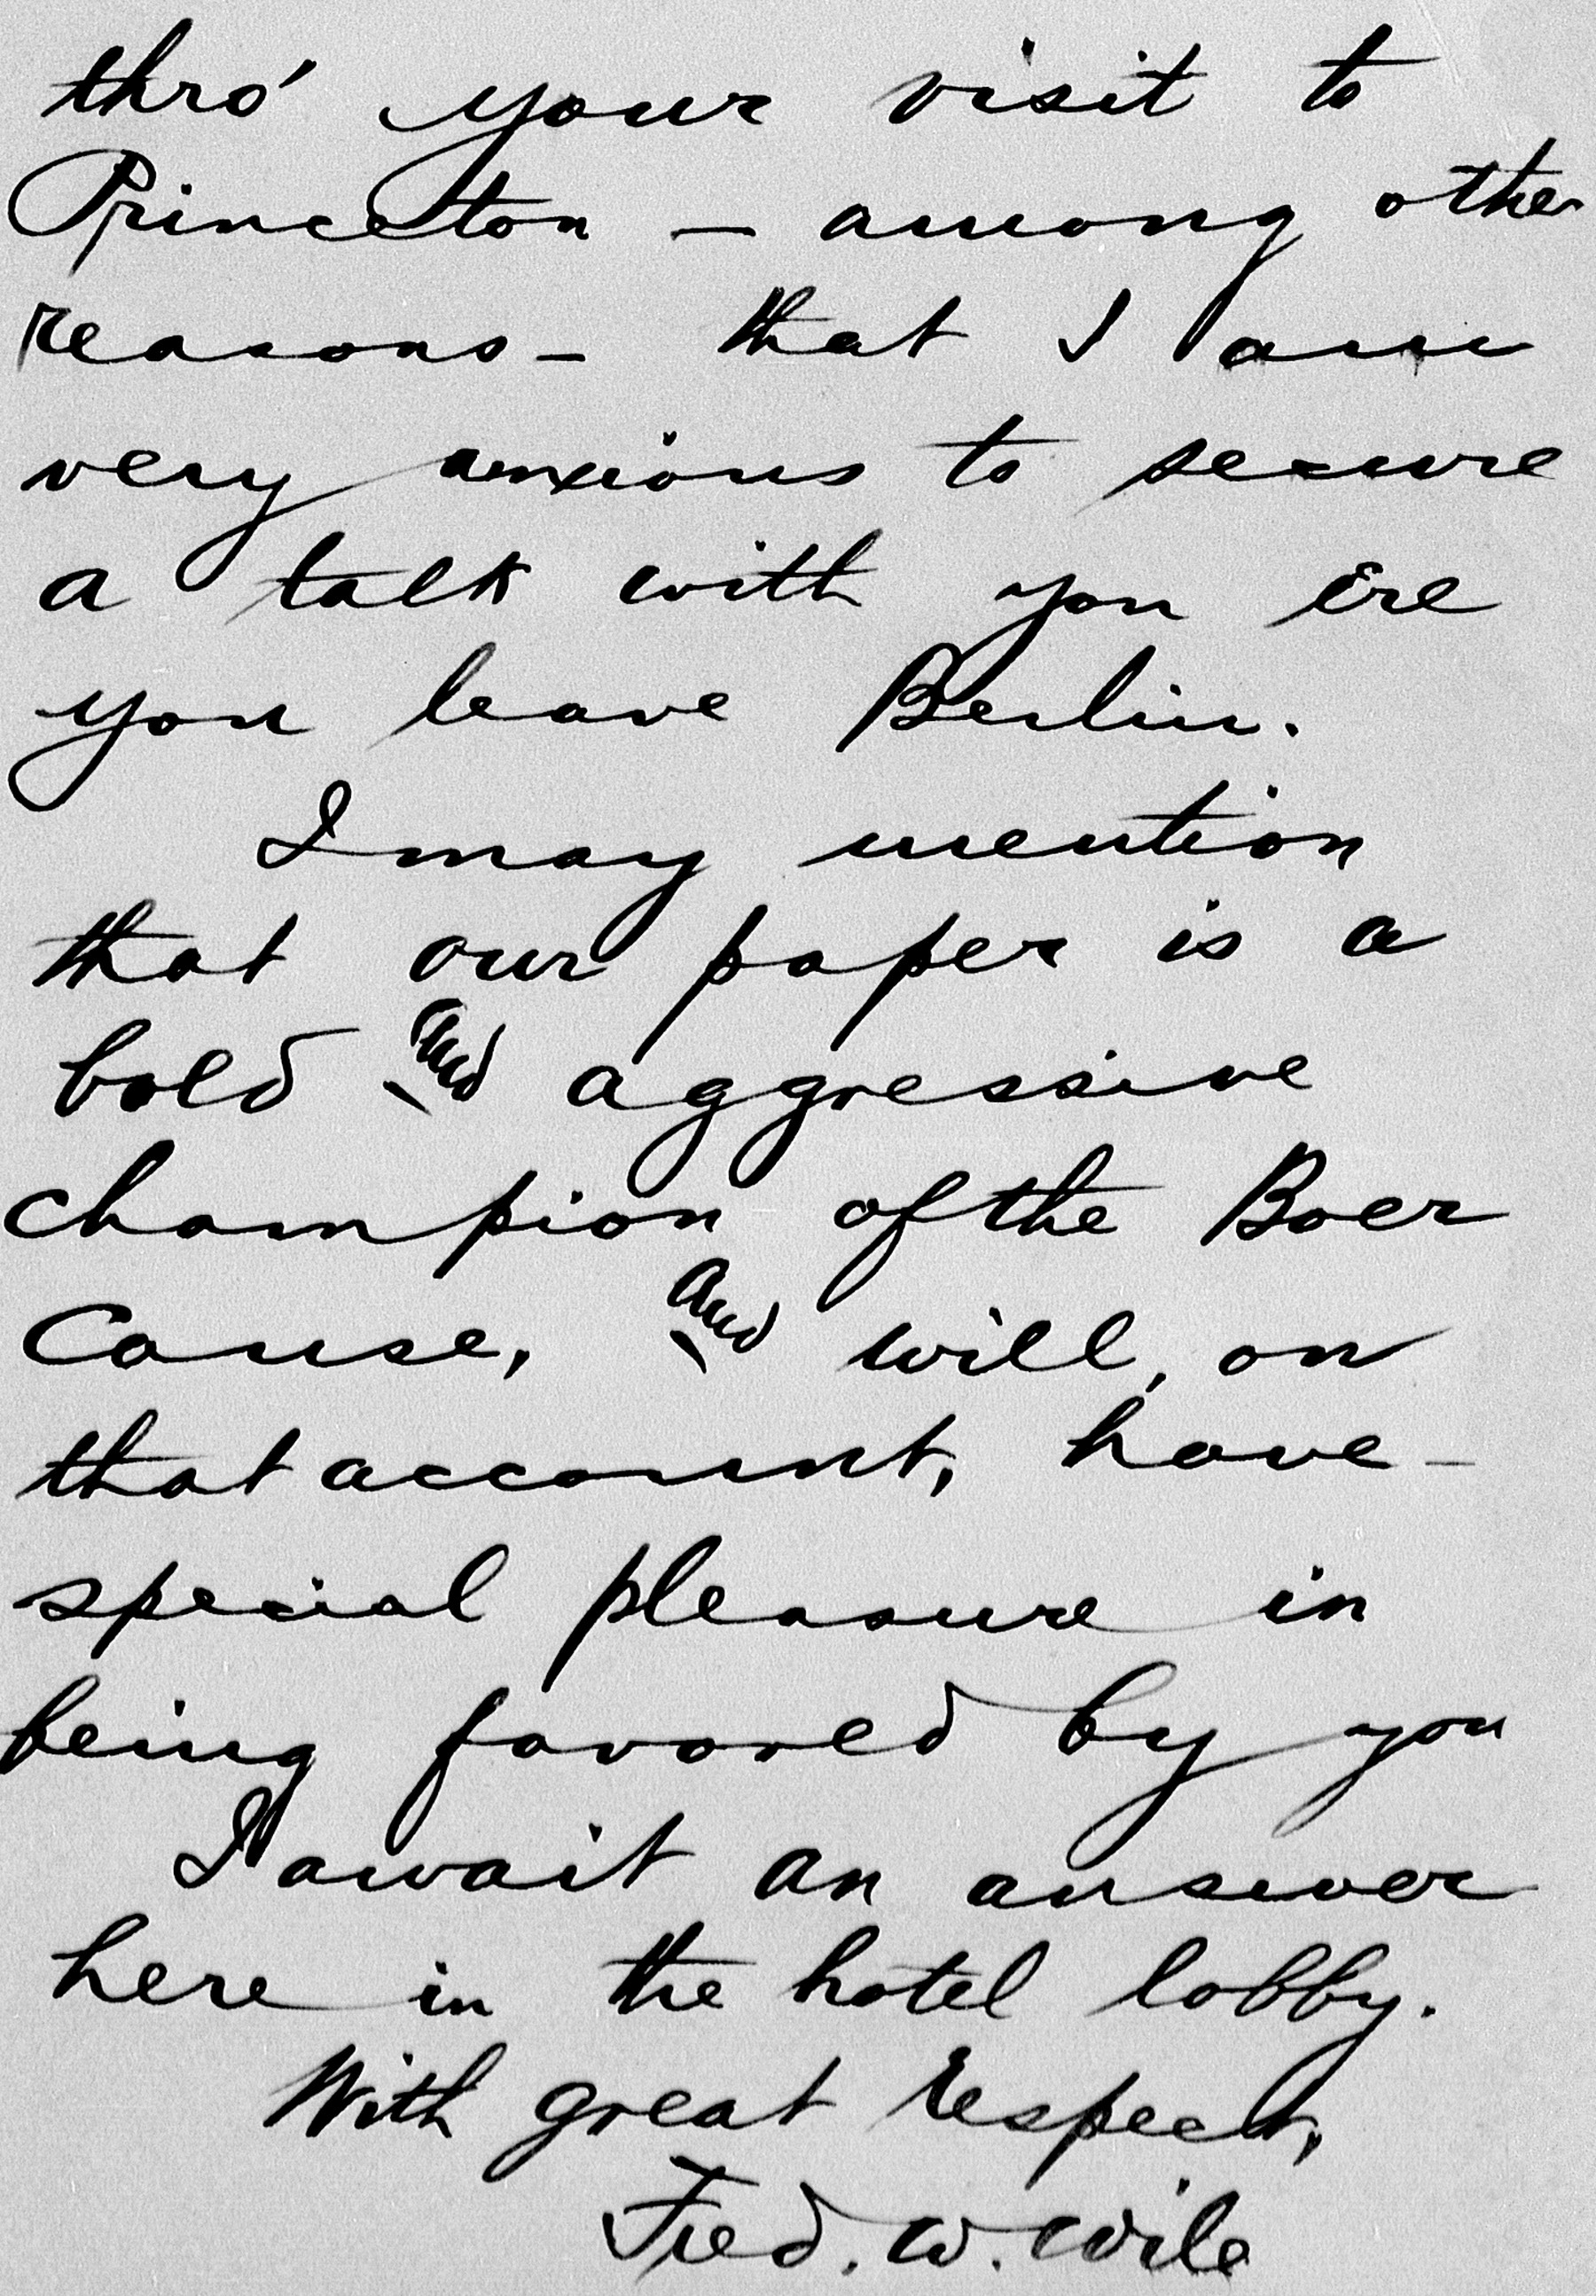 thro' your visit to
Princeton — among other
reasons — that I am
very anxious to secure
a talk with you ere
you leave Berlin.
I may mention
that our paper is a
bold and aggressive
champion of the Boer
Cause, and will, on
that account, have
special pleasure in
being favored by you
I await an answer
here in the hotel lobby.
With great respect,
Fred. W. Wile